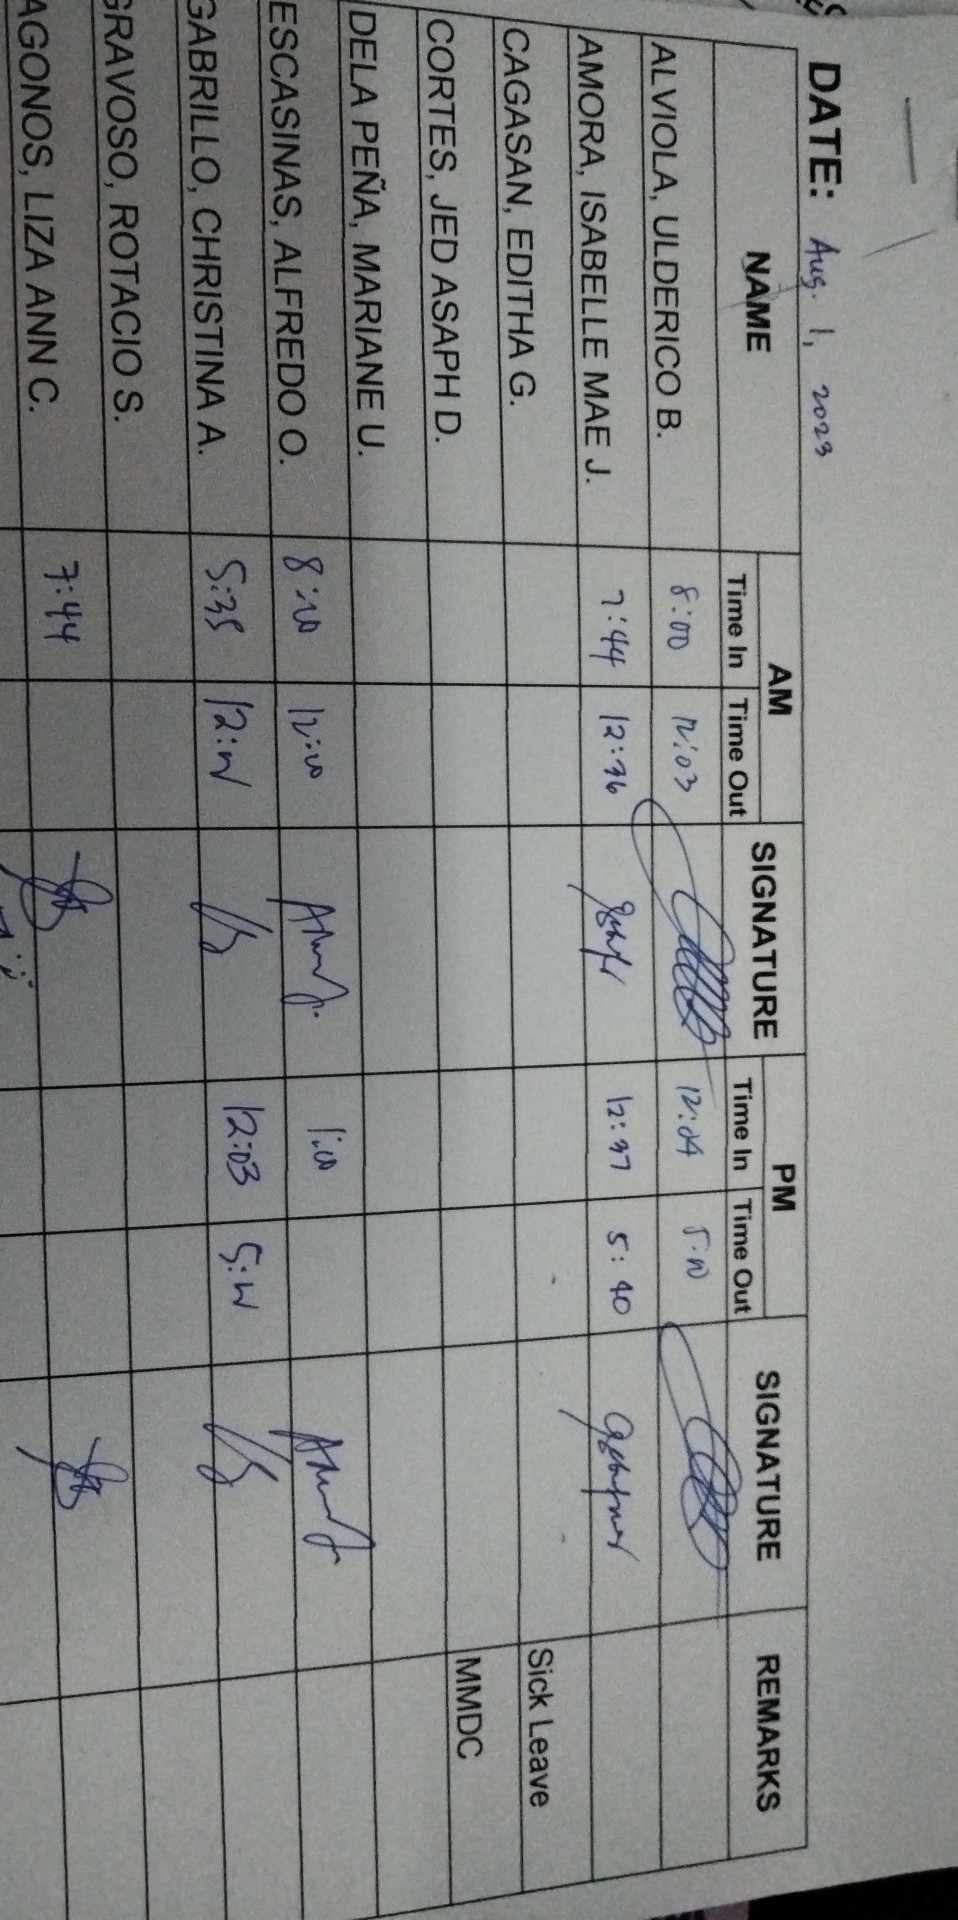 DATE: Aug. 1, 2023
NAME AM SIGNATURE PM SIGNATURE REMARKS
Time In Time Out Time In Time Out
ALVIOLA, ULDERICO B. 8:00 12:03 12:04 5:00
AMORA, ISABELLE MAE J. 7:44 12:36 12:37 5:40
CAGASAN, EDITHA G. Sick Leave
CORTES, JED ASAPH D. MMDC
DELA PEÑA, MARIANE U.
ESCASINAS, ALFREDO O. 8:00 12:00 1:00
GABRILLO, CHRISTINA A. 5:35 12:02 12:03 5:02
GRAVOSO, ROTACIO S.
AGONOS, LIZA ANN C. 7:44